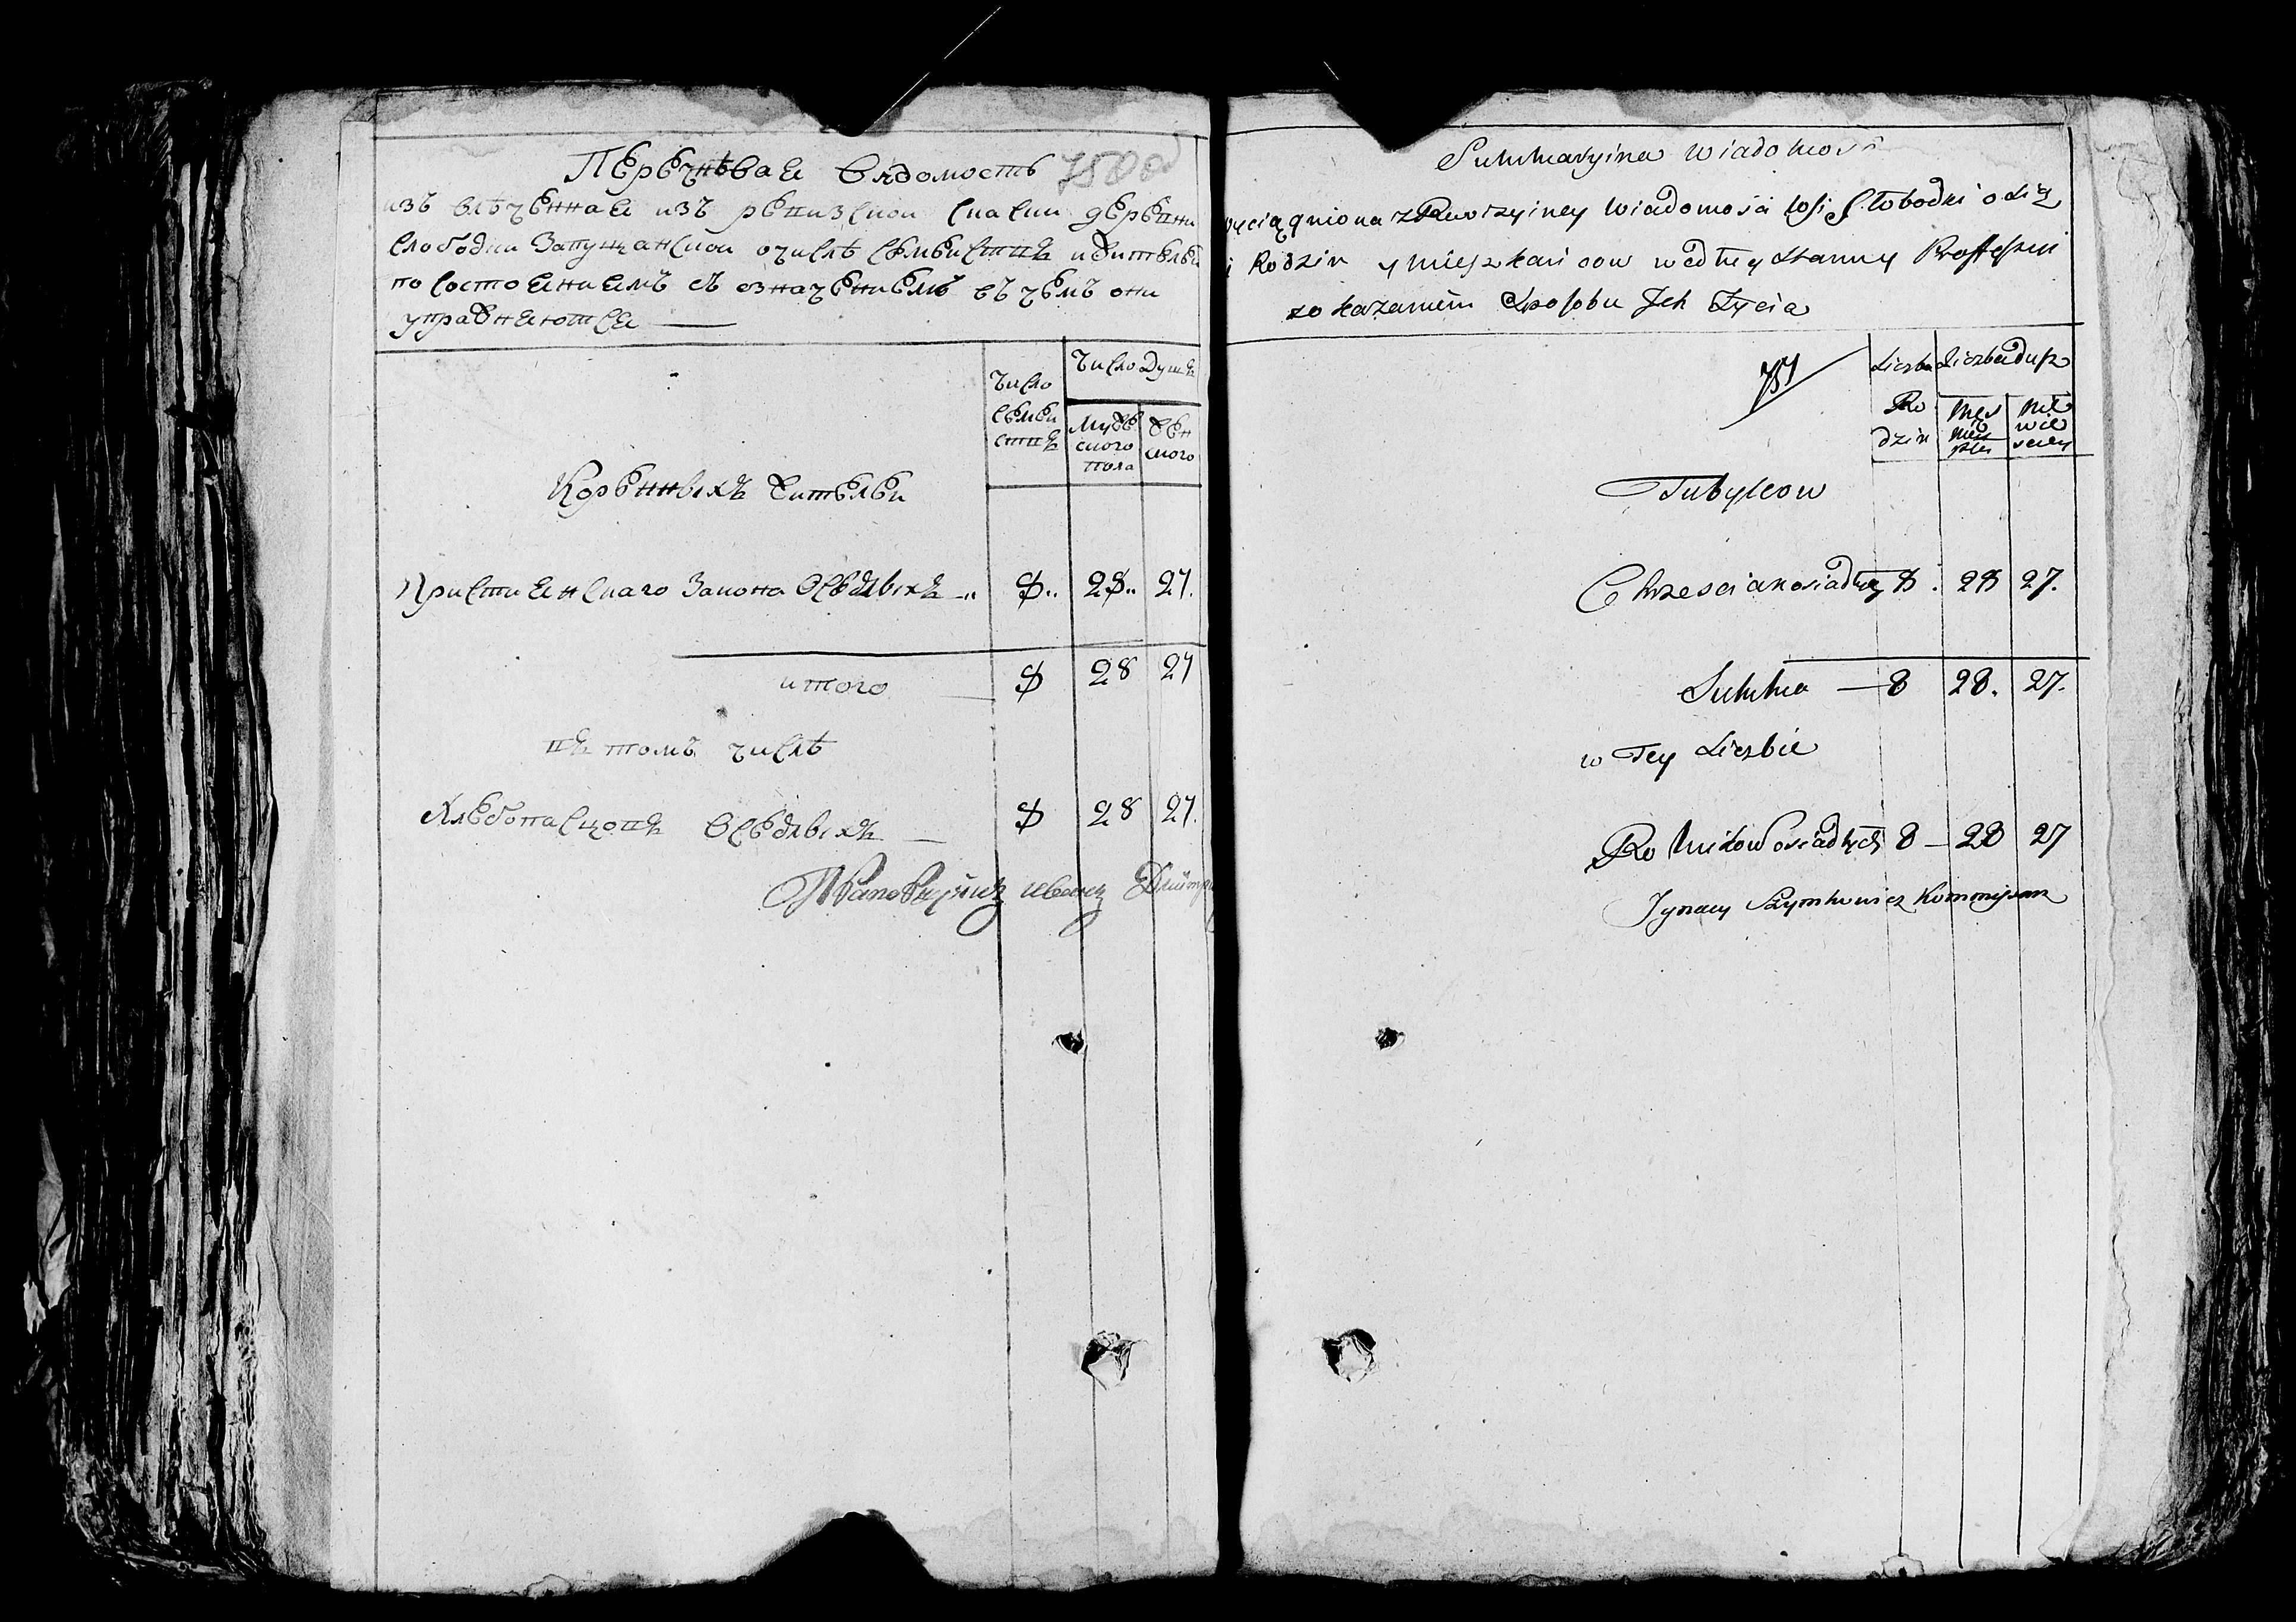 Перечневая вѣдомость 750 об
изъ влеченная изъ ревизской скаски деревни
Слободки Запущанской очислѣ семействъ ижителей
по состоянiямъ съ означенiемъ въ чемъ они
упражняются
Число семействъ
Число Душъ
Мужескаго пола
Женскаго
Коренныхъ жителей
Христианскаго Закона Оседлыхъ 8 28 27.
итого 8 28 27
въ томъ числѣ
Хлебопасцовъ Оседлыхъ 8 28 27.
Summaryina Wiadomość
wyciągniona z Rewizyiney Wiadomości Wsi Słobodki o Licz
i Rodzin y mieszkańcow według Stanu y Professyi
zo kazaniem Sposobu Jch Życia
751
Liczba Rodzin
Liczba dusz
Męs
Nie wie sciey
Tubylcow
Chrzescian osiadłych 8. 28 27.
Summa — 8 28. 27.
w Tey Liczbie
Rolnikow osiadłych 8 — 28 27
Jgnacy Szymkowicz Kommissarz